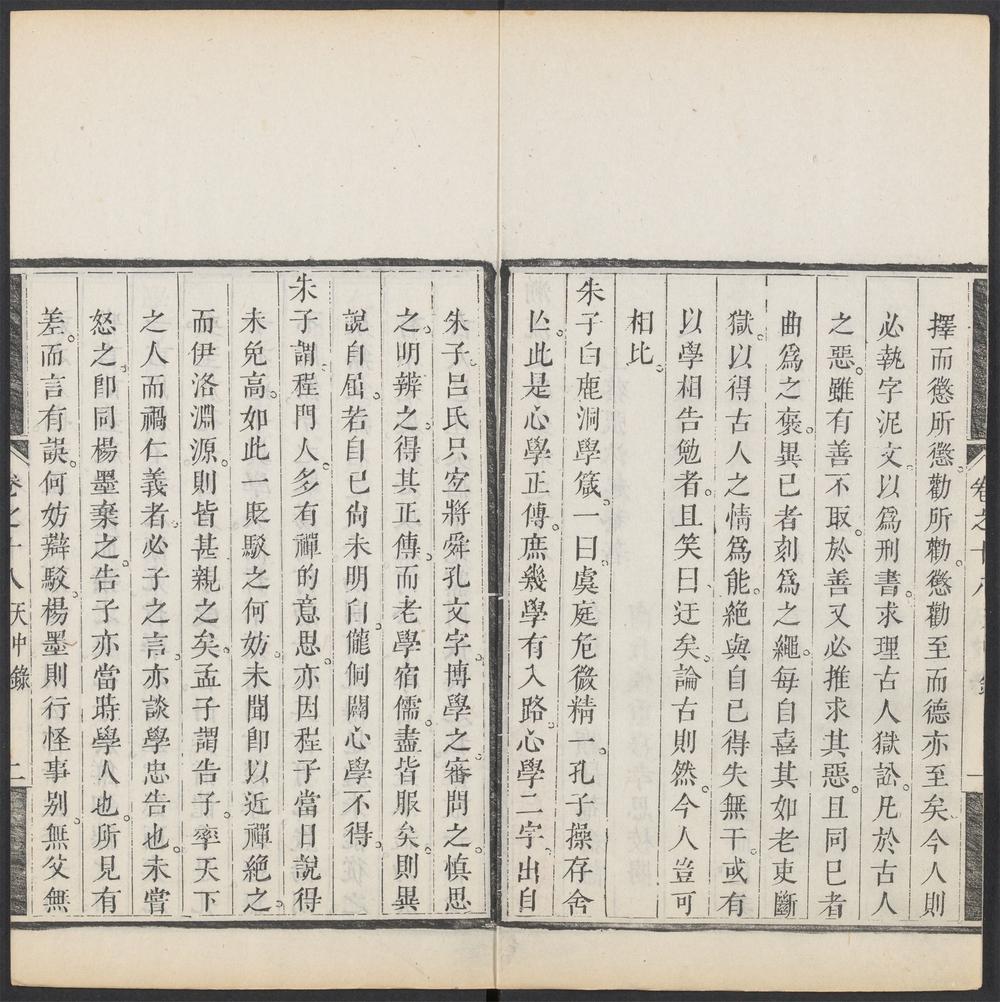 擇而懲所懲。勸所勸。懲勸至而德亦至矣。今人則
必執字泥文。以爲刑書。求理古人獄訟。凡於古人
之惡。雖有善不取。於善又必推求其惡。且同已者
曲爲之褒。異已者刻爲之繩。每自喜其如老吏斷
獄。以得古人之情爲能。絕與自已得失無干。或有
以學相告勉者。且笑曰迂矣。論古則然。今人豈可
相比。
朱子白鹿洞學箴。一曰虞庭危微精一。孔子操存舍
亾。此是心學正傳。庶幾學有入路。心學二字。出自
朱子。呂氏只宐將舜孔文字。博學之。審問之。慎思
之。明辨之。得其正傳。而老學宿儒。盡皆服矣。則異
說自屈。若自已尙未明。自儱侗闢心學。不得。
朱子謂。程門人。多有禪的意思。亦因程子當日說得
未免高。如此一貶駁之何妨。未聞卽以近禪絕之。
而伊洛淵源。則皆甚親之矣。孟子謂告子。率天下
之人而禍仁義者。必子之言。亦談學忠告也。未嘗
怒之。卽同楊墨棄之。告子亦當時學人也。所見有
差。而言有誤。何妨辯駁。楊墨則行怪事别。無父無
卷之十八 天中錄 二